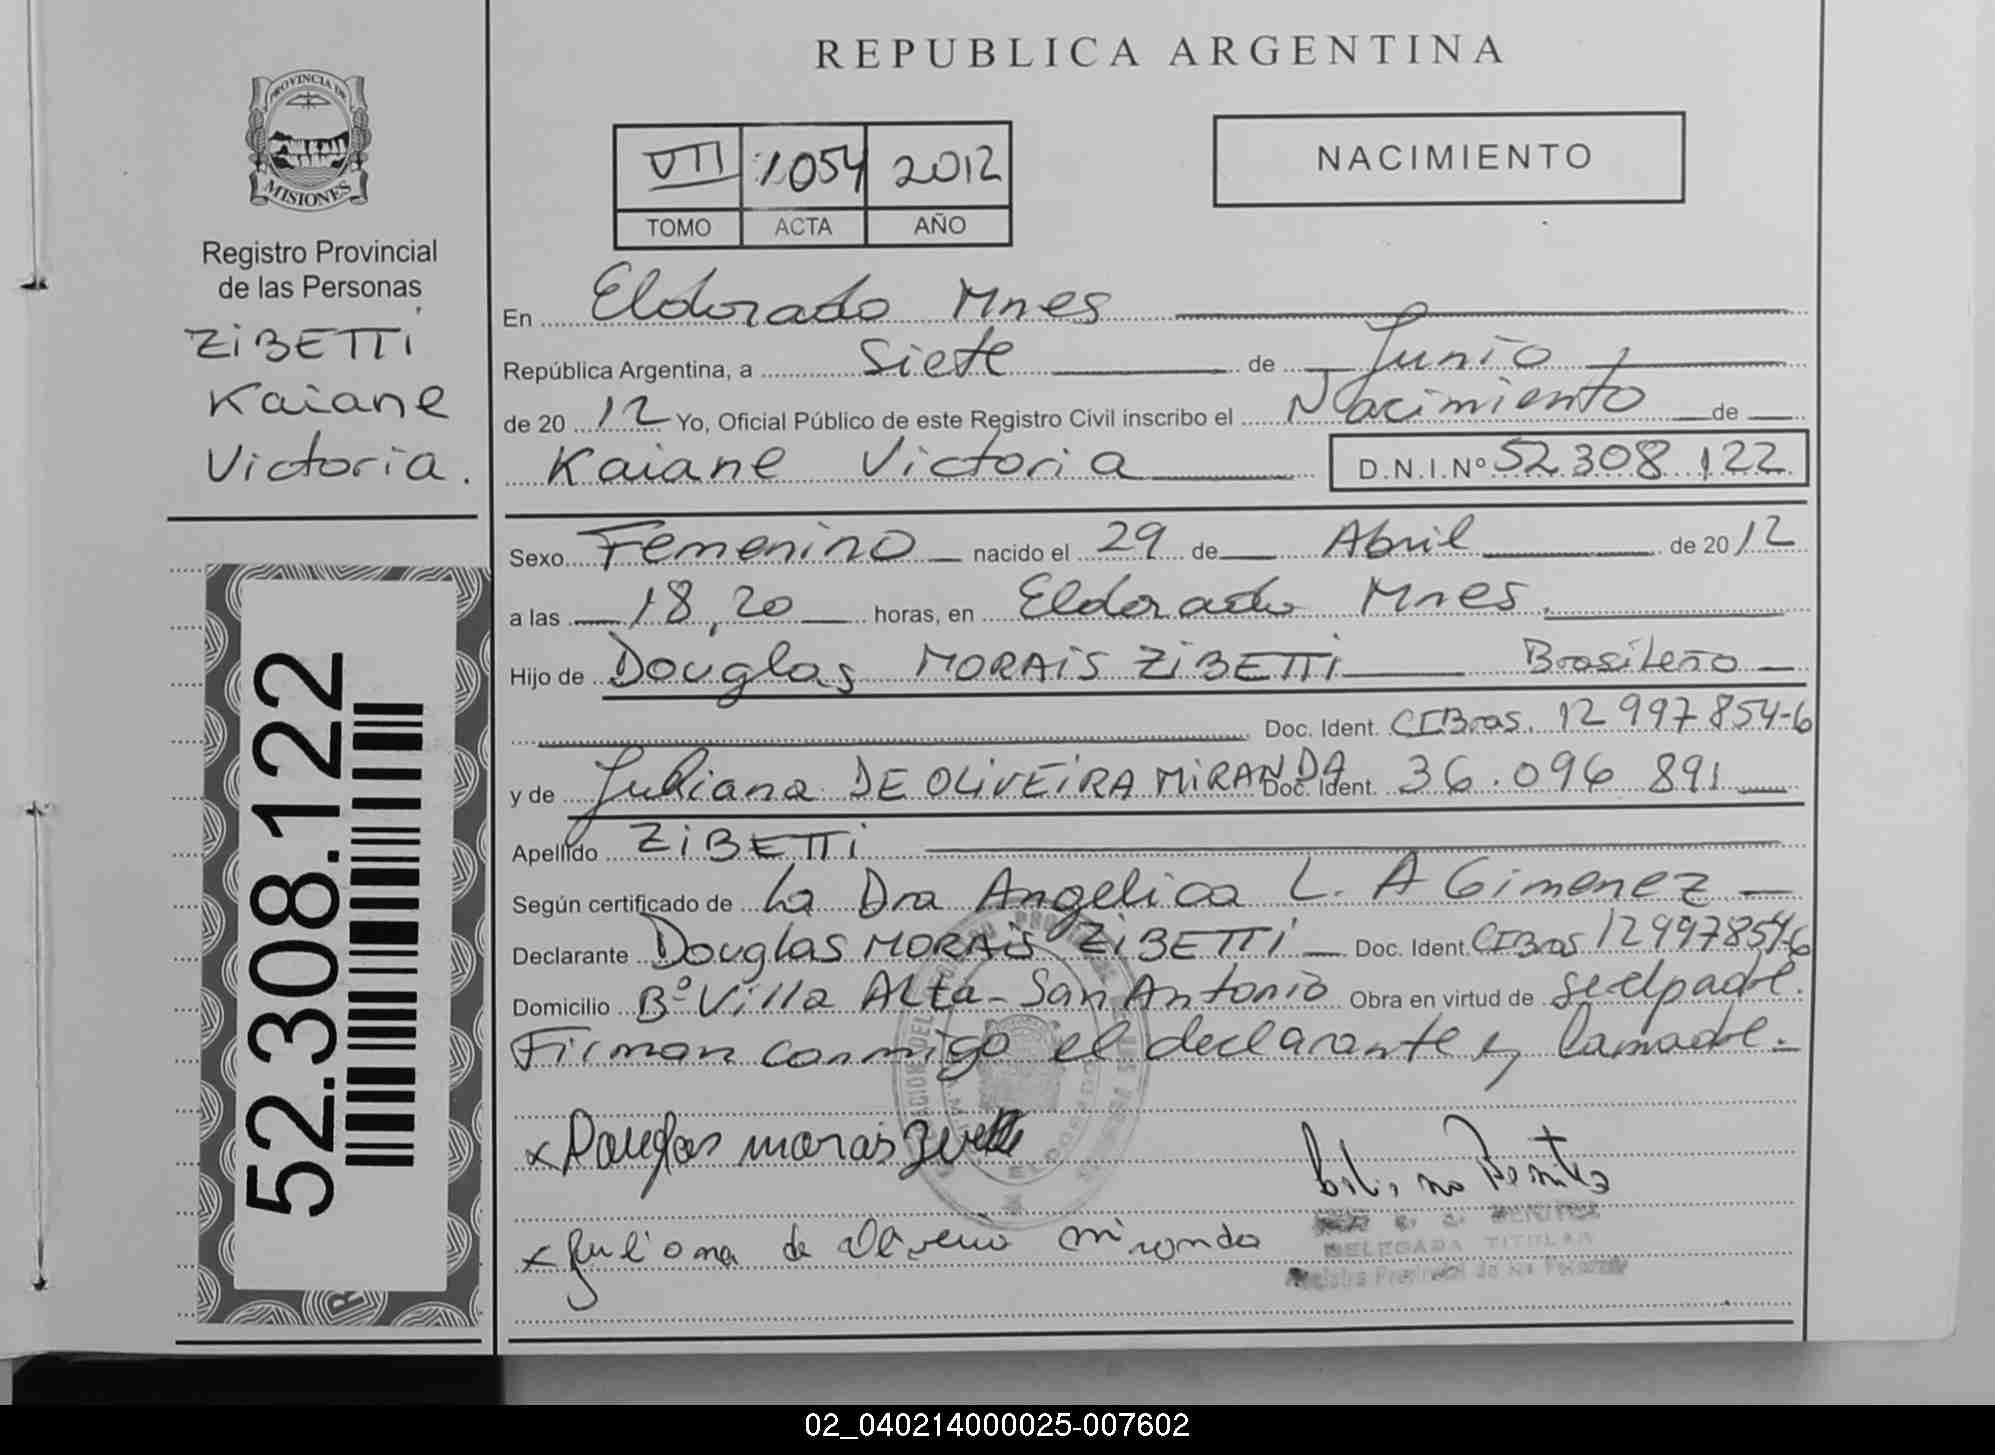 REPUBLICA ARGENTINA
PROVINCIA DE
MISIONES
Registro Provincial
de las Personas
ZIBETTI
Kaiane
Victoria.
52.308.122
VII 1054 2012
TOMO ACTA AÑO
NACIMIENTO
En Eldorado Mnes
República Argentina, a Siete de Junio
de 20 12 Yo, Oficial Público de este Registro Civil inscribo el Nacimiento de
Kaiane Victoria D.N.I.Nº 52.308.122
Sexo Femenino nacido el 29 de Abril de 20 12
a las 18,20 horas, en Eldorado Mnes.
Hijo de Douglas MORAIS ZIBETTI Brasileño
Doc. Ident. CIBras. 12 997 854-6
y de Juliana DE OLIVEIRA MIRANDA Doc. Ident. 36.096 891
Apellido ZIBETTI
Según certificado de La Dra Angelica L. A Gimenez
Declarante Douglas MORAIS ZIBETTI Doc. Ident. CIBras 12997854-6
Domicilio Bº Villa Alta - San Antonio Obra en virtud de se el padre.
Firman conmigo el declarante y la madre.-
x Douglas morais
x Juliana de Oliveira miranda
DELEGADA TITULAR
Registro Provincial de las Personas
02_040214000025-007602